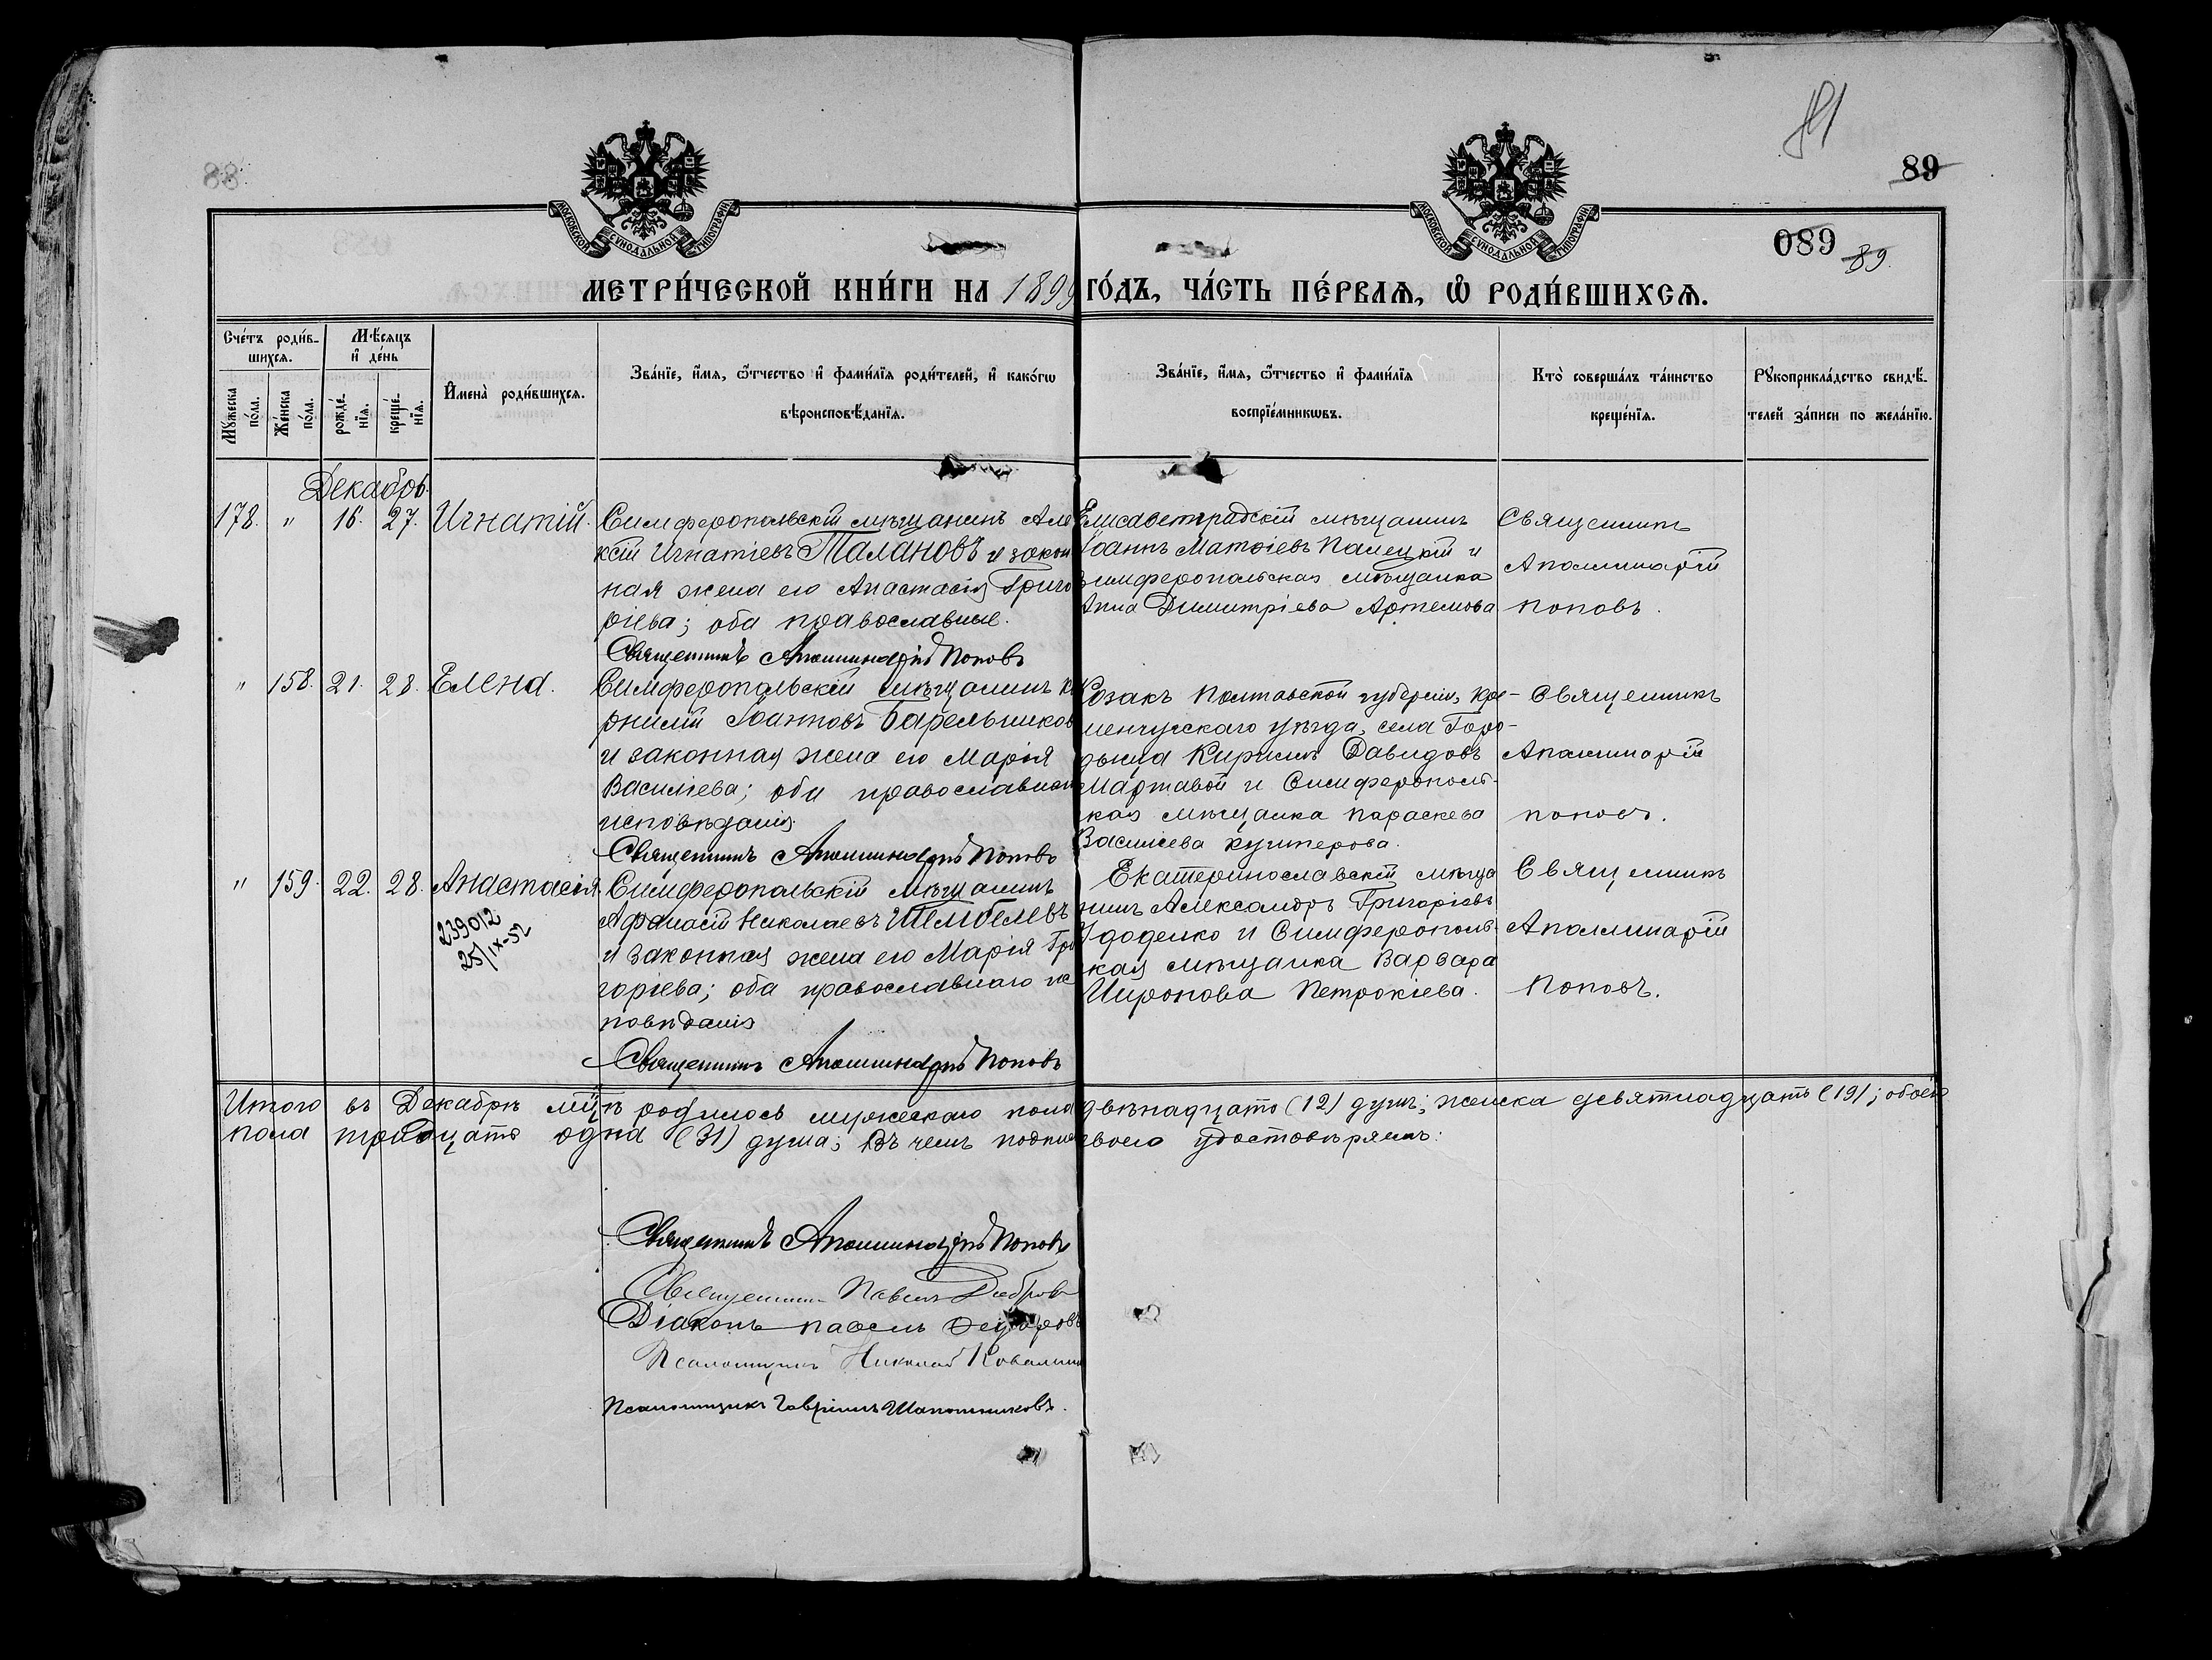 88
89
089
89
МОСКОВСКОЙ СУНОДАЛЬНОЙ ТИПОГРАФІИ
МОСКОВСКОЙ СУНОДАЛЬНОЙ ТИПОГРАФІИ
МЕТРИ́ЧЕСКОЙ КНИ́ГИ НА 1899 ГО́ДЪ, ЧА́СТЬ ПЕ́РВАѦ, Ѡ РОДИ́ВШИХСѦ.
Сче́тъ роди́в-
шихсѧ.
Мѣ́сѧцъ
и҆ де́нь
Мꙋ́жеска по́ла.
Же́нска по́ла.
рожде́-нїѧ.
креще́-нїѧ.
И҆мена̀ роди́вшихсѧ.
Зва́нїе, и҆́мѧ, ѻ҆́тчество и҆ фами́лїѧ роди́телей, и҆ како́гѡ
вѣроисповѣ́данїѧ.
Зва́нїе, и҆́мѧ, ѻ҆́тчество и҆ фами́лїѧ
воспрїе́мникѡвъ.
Кто̀ соверша́лъ та́инство
креще́нїѧ.
Рꙋкоприкла́дство свидѣ́-
телей за́писи по жела́нїю.
Декабрь.
178. " 16. 27. Игнатій.
Симферопольскій мѣщанинъ Але
ксій Игнатіевъ Талановъ и закон
ная жена его Анастасія Григо
ріева; оба православные.
Священникъ Аполлинарій Поповъ
Елисаветградскій мѣщанинъ
Іоаннъ Матѳіевъ Палецкій и
Симферопольская мѣщанка
Анна Димитріева Артемова
Священникъ
Аполлинарій
Поповъ.
" 158. 21. 28. Елена.
Симферопольскій мѣщанинъ Ко
рнилій Іоанновъ Барельшиковъ
и законная жена его Марія
Василіева; оба православнаго
исповѣданія.
Священникъ Аполлинарій Поповъ
Козакъ Полтавской губерніи, Кре-
менчугскаго уѣзда, села Горо-
дыща Кириллъ Давидовъ
Мартавой и Симферополь-
кая мѣщанка Параскева
Василіева Кушнерова.
Священникъ
Аполлинарій
Поповъ.
" 159. 22. 28. Анастасія
239012
25/IX-52
Симферопольскій мѣщанинъ
Афанасій Николаевъ Шембелевъ
и законная жена его Марія Гри
горіева; оба православнаго ис
повѣданія
Священникъ Аполлинарій Поповъ
Екатеринославскій мѣща
нинъ Александръ Григоріевъ
Удоденко и Симферополь-
кая мѣщанка Варвара
Миронова Петрокіева.
Священникъ
Аполлинарій
Поповъ.
Итого въ Декабрѣ мцѣ родилось мужескаго пола двѣнадцать (12) душъ; женска девятнадцать (19); обоего
пола тридцать одна (31) душа; Въ чемъ подписомъ своею удостовѣряемъ:
Священникъ Аполлинарій Поповъ
Священникъ Павелъ Добровъ
Діаконъ Павелъ Ѳедоровъ
Псаломщикъ Николай
Псаломщикъ Гавріилъ Шапошниковъ.